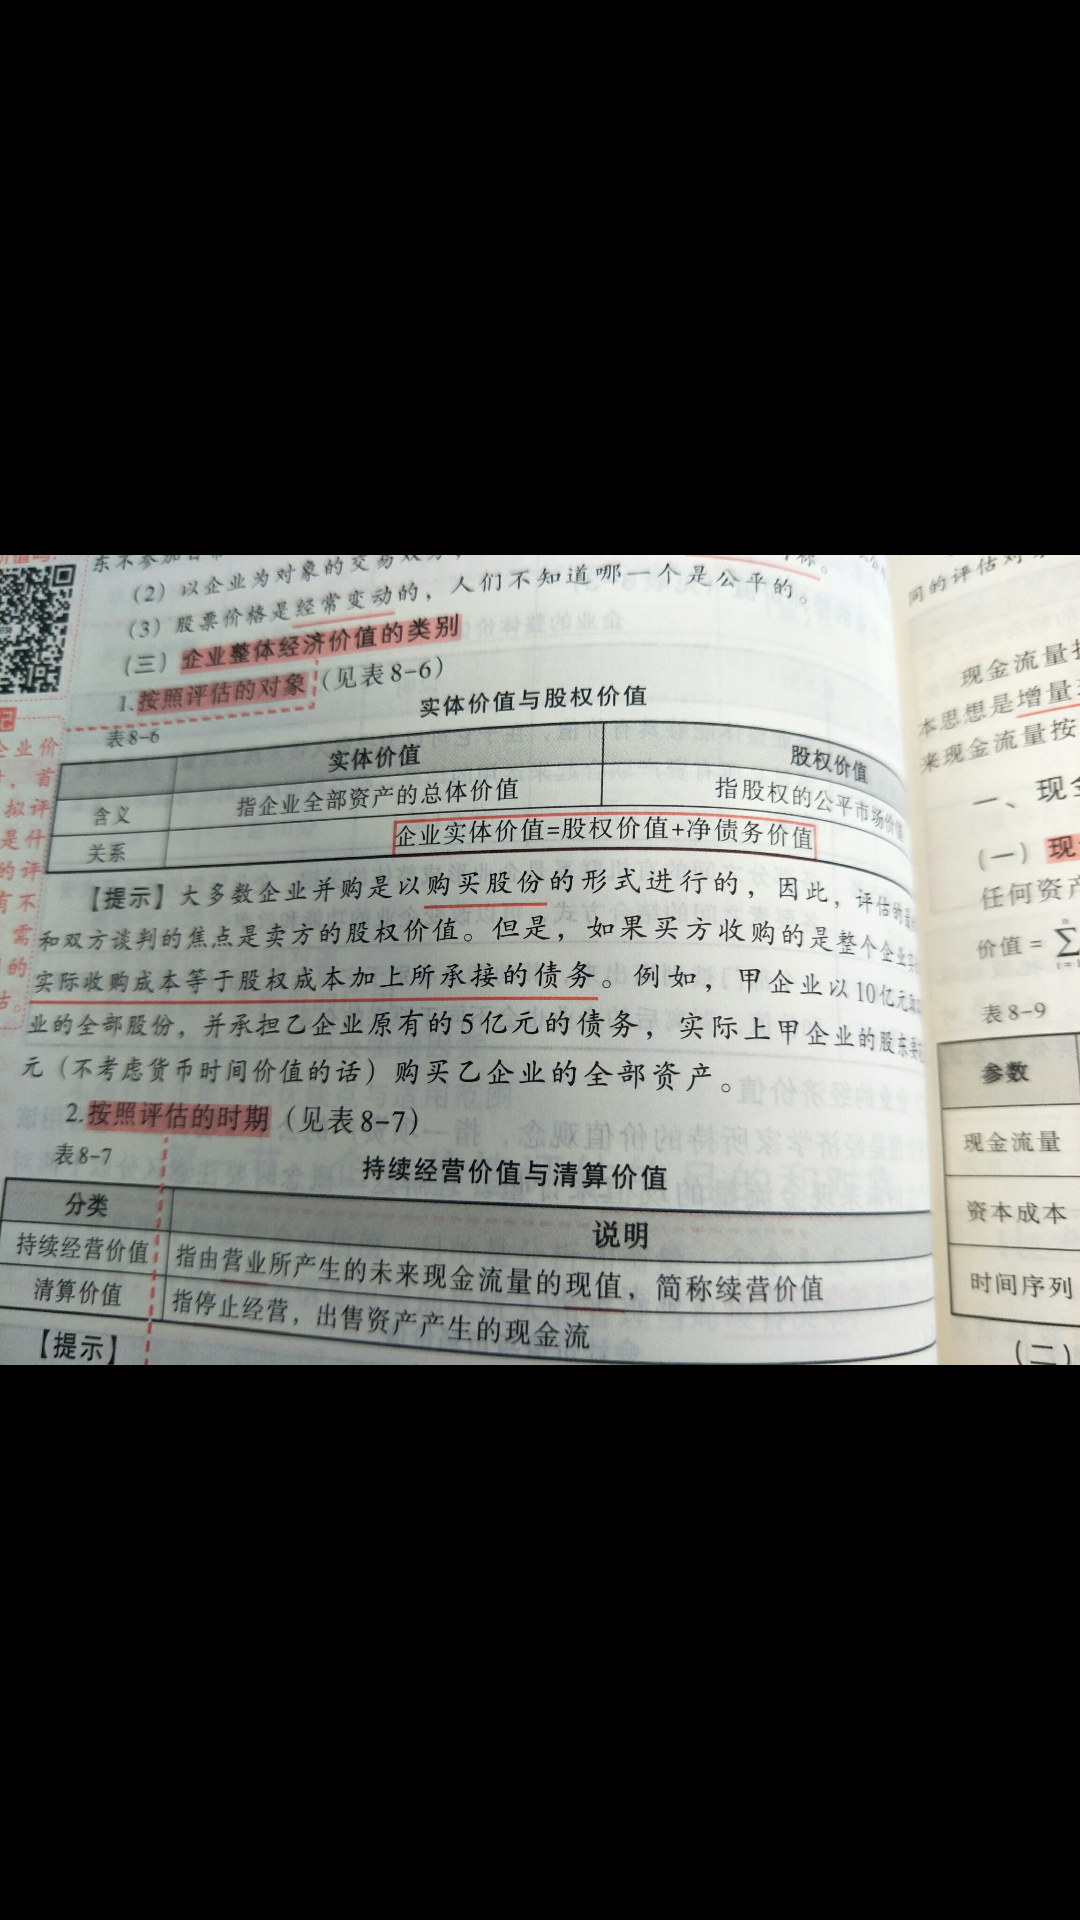 (2) 以企业为对象的交易双方
(3) 股票价格是经常变动的，人们不知道哪一个是公平的。
(三) 企业整体经济价值的类别
1.按照评估的对象 (见表8-6)
表8-6
实体价值与股权价值
实体价值 股权价值
含义 指企业全部资产的总体价值 指股权的公平市场价值
关系 企业实体价值=股权价值+净债务价值
【提示】大多数企业并购是以购买股份的形式进行的，因此，评估的
和双方谈判的焦点是卖方的股权价值。但是，如果买方收购的是整个企业
实际收购成本等于股权成本加上所承接的债务。例如，甲企业以10亿元
业的全部股份，并承担乙企业原有的5亿元的债务，实际上甲企业的股东要
元（不考虑货币时间价值的话）购买乙企业的全部资产。
2.按照评估的时期（见表8-7）
表8-7
持续经营价值与清算价值
分类 说明
持续经营价值 指由营业所产生的未来现金流量的现值，简称续营价值
清算价值 指停止经营，出售资产产生的现金流
【提示】
企业价
，首
拟评
是什
的评
有不
需
的
估。
同的评估对
现金流量
本思想是增量
来现金流量按
一、现金
(一) 现
任何资产
价值 = ∑
表8-9
参数
现金流量
资本成本
时间序列
(二)